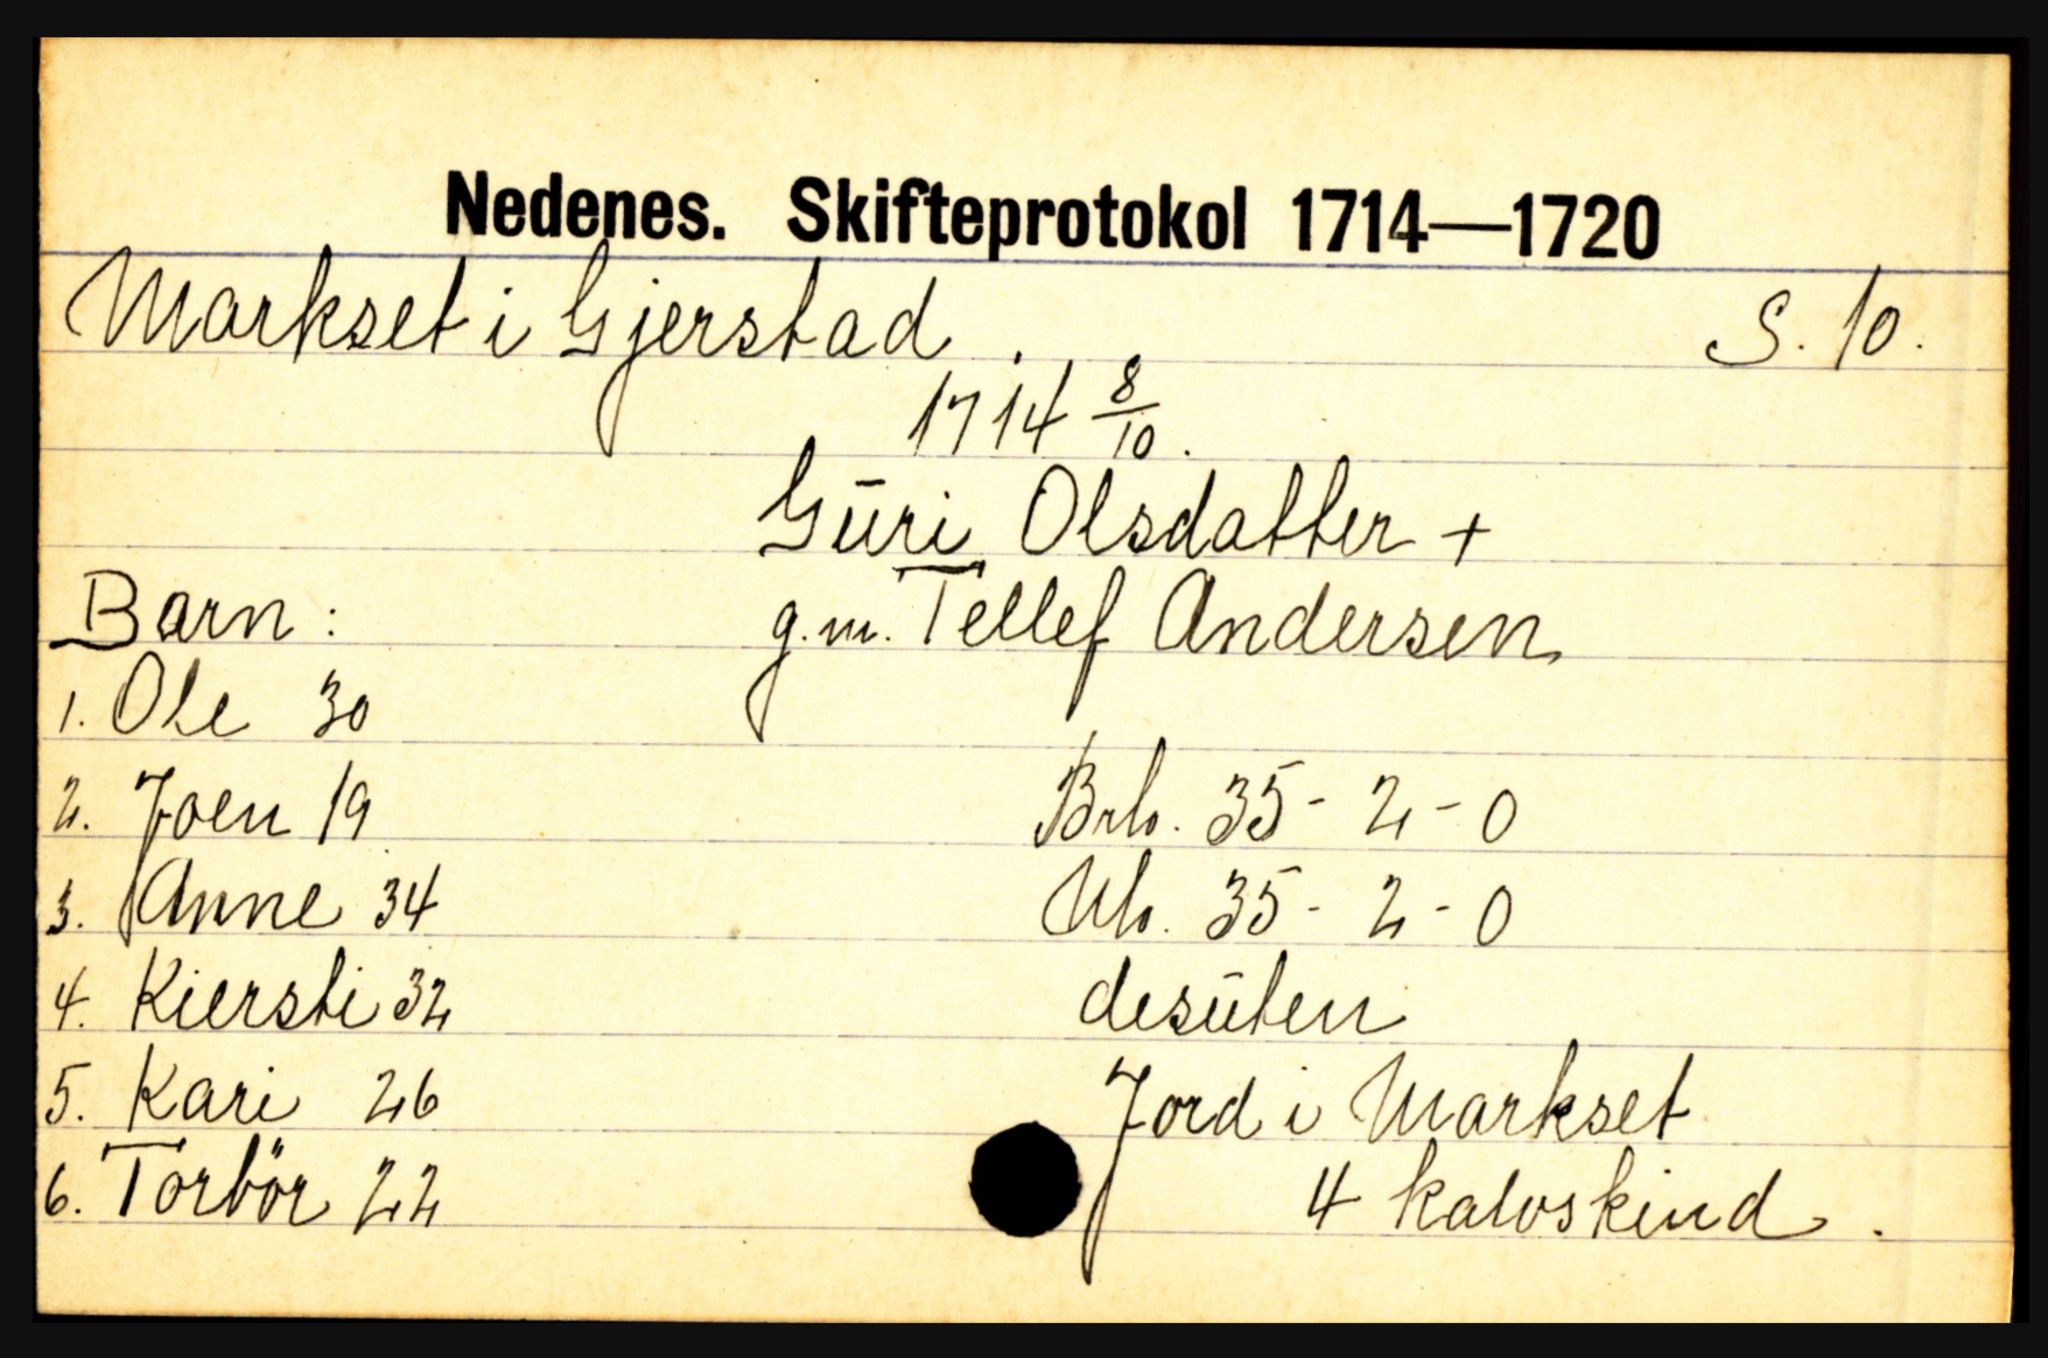 Nedenes. Skifteprotokol 1714—1720
Markset i Gjerstad. S. 10.
1714 8/10.
Gūri Olsdatter +
g.m. Tellef Andersen
Barn:
1. Ole 30
2. Joen 19
3. Anne 34
4. Kiersti 32
5. Kari 26
6. Torbör 22
Brb. 35 - 2 - 0
Nb. 35 - 2 - 0
desūten
Jord i Markset
4 kalvskind.